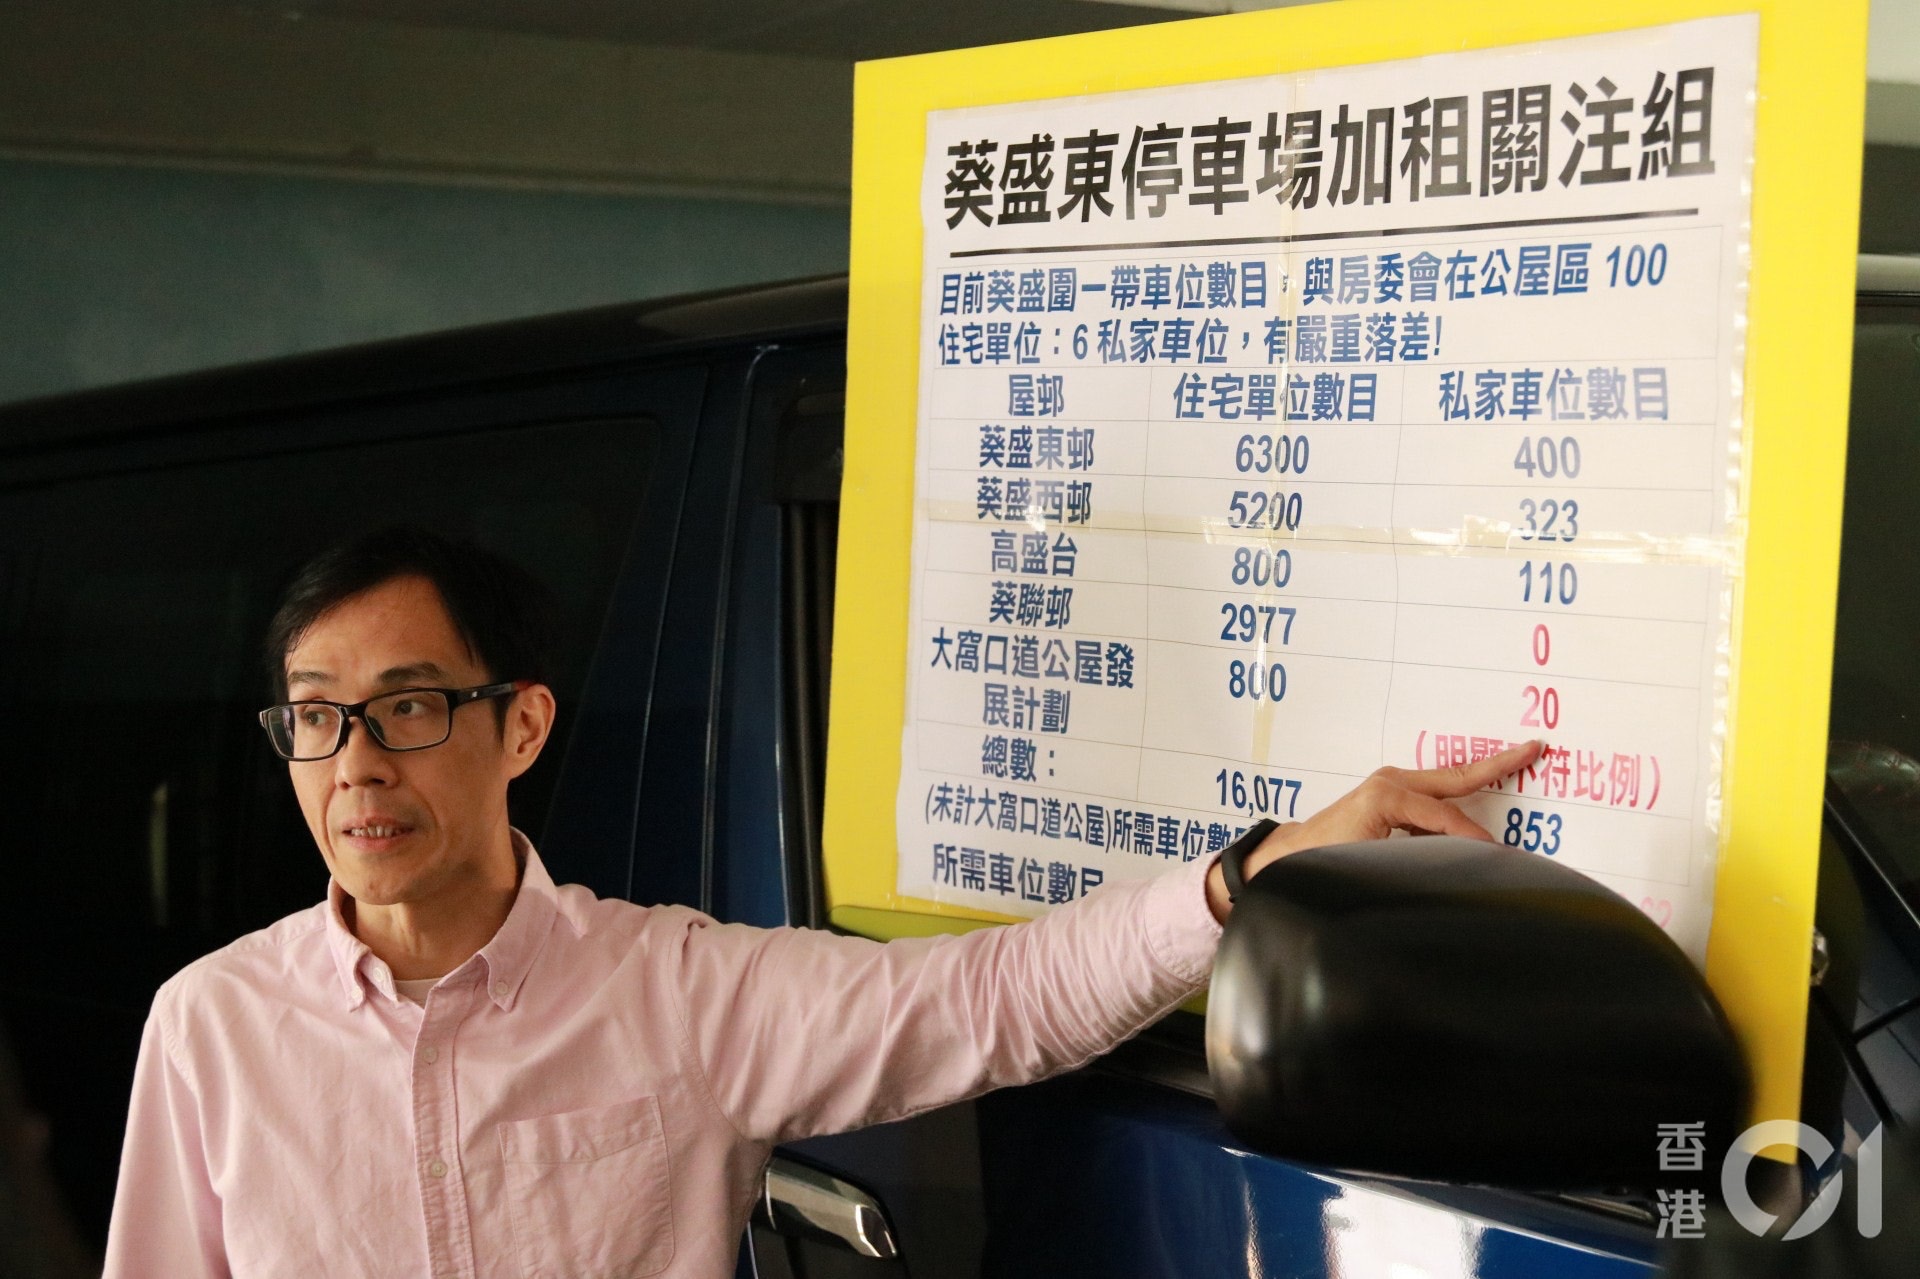 葵盛東停車場加租關注組
目前葵盛圍一帶車位數目，與房委會在公屋區 100
住宅單位：6 私家車位，有嚴重落差!
屋邨 住宅單位數目 私家車位數目
葵盛東邨 6300 400
葵盛西邨 5200 323
高盛台 800 110
葵聯邨 2977 0
大窩口道公屋發 800 20
展計劃 （明顯不符比例）
總數： 16,077 853
(未計大窩口道公屋)所需車位數
所需車位數目
香港01